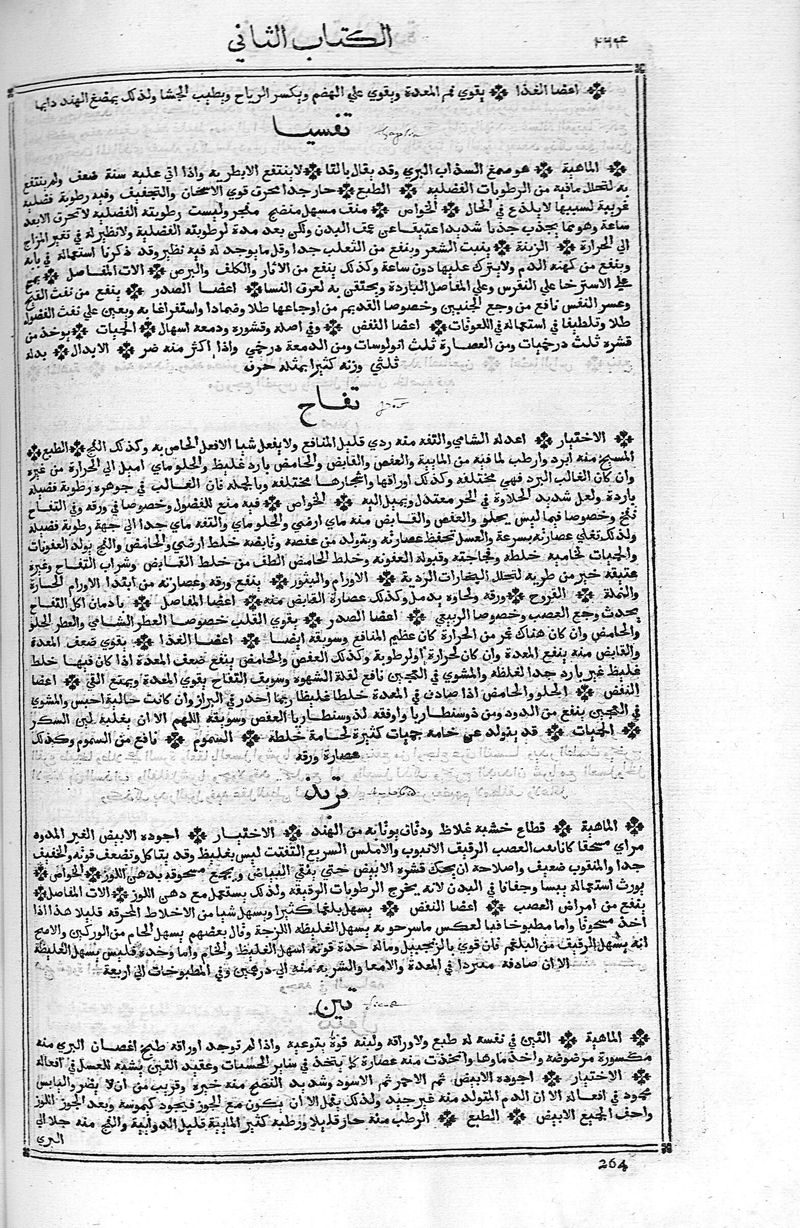 الكتاب الثاني
٢٦٤
❖ اعضا الغذا ❖ يقوي فم المعدة ويقوي علي الهضم ويكسر الرياح ويطيب الجشا ولذلك يمضغ الهند دايما
تفسيا
❖ الماهية ❖ هو صمغ السذاب البري وقد يقال بالقا ❖ لا ينتفع الا بطريه واذا اتي عليه سنة ضعف ولم ينتفع
به لتحلل مافيه من الرطوبات الفضلية ❖ الطبع ❖ حار جدا محرق قوي الاسخان والتجفيف وفيه رطوبة فضلية
غريبة لسببها لا يلذع في الحال ❖ الخواص ❖ منف مسهل منضج مفجر وليست رطوبته الفضلية لا تحرق الا بعد
ساعة وهو مما يجذب جذبا شديدا عنيفا عن عمق البدن ولكن بعد مدة لرطوبته الفضلية ولا نظير له في تغير المزاج
الي الحرارة ❖ الزينة ❖ ينبت الشعر وينفع من الثعلب جدا وقل ما يوجد له فيه نظير وقد ذكرنا استعماله في بابه
وينفع من كهنة الدم ولا يترك عليها دون ساعة وكذلك ينفع من الاثار والكلف والبرص ❖ الات المفاصل ❖
علي الاسترخا علي النقرس وعلي المفاصل الباردة ويحتقن به لعرق النسا ❖ اعضا الصدر ❖ ينفع من نفث القيح
وعسر النفس نافع من وجع الجنبين وخصوصا القديم من اوجاعها طلا وضمادا واستفراغا به ويعين علي نفث الفضول
طلا وتلطيفا في استعماله في اللعوقات ❖ اعضا النفض ❖ وفي اصله وقشوره ودمعه اسهال ❖ الحميات ❖ يوخذ من
قشره ثلث درخميات ومن العصارة ثلث انولوسات ومن الدمعة درخمي واذا اكثر منه ضر ❖ الابدال ❖ بدله
ثلثي وزنه كثيرا بمثله حرف
تفاح
❖ الاختيار ❖ اعدله الشامي والتفه منه ردي قليل المنافع ولا يفعل شيا الا فعل الخاص به وكذلك الفج ❖ الطبع ❖
المسيخ منه ابرد وارطب لما فيه من المايية والعفص والقابض والحامض بارد غليظ والحلو ماي اميل الي الحرارة من غيره
وان كان الغالب البرد فهي مختلفة وكذلك اوراقها واشجارها مختلفة وبالجملة فان الغالب في جوهره رطوبة فضلية
باردة ولعل شديد الحلاوة في الحر معتدل ويميل اليه ❖ الخواص ❖ فيه منع للفضول وخصوصا في ورقه وفي التفاح
نفخ وخصوصا فيما ليس يحلو والعفص والقابض منه ماي ارضي والحلو ماي والتفه ماي جدا الي جهة رطوبة فضلية
ولذلك تغلي عصارته بسرعة والعسل تحفظ عصارته ويتولد من عفصه وقابضه خلط ارضي والحامض والفج يولد العفونات
والحميات لخامية خلطه وفجاجته وقبوله العفونة وخلط الحامض الطف من خلط القابض وشراب التفاح وغيره
عتيقه خير من طريه لتحلل البخارات الردية ❖ الاورام والبثور ❖ ينفع ورقه وعصارته من ابتدا الاورام الحارة
والنملة ❖ القروح ❖ ورقه ولحاوه يدمل وكذلك عصارة القابض منه ❖ اعضا المفاصل ❖ بادمان اكل التفاح
يحدث وجع العصب وخصوصا الربيعي ❖ اعضا الصدر ❖ يقوي القلب خصوصا العطر الشامي والعطر الحلو
والحامض وان كان هناك غم من الحرارة كان عظيم المنافع وسويقه ايضا ❖ اعضا الغذا ❖ يقوي ضعف المعدة
والقابض منه ينفع المعدة وان كان لحرارة او لرطوبة وكذلك العفص والحامض ينفع ضعف المعدة اذا كان فيها خلط
غليظ غير بارد جدا لغلظه والمشوي في العجين نافع لقلة الشهوة وسويق التفاح يقوي المعدة ويمنع القي ❖ اعضا
النفض ❖ الحلو والحامض اذا صادف في المعدة خلطا غليظا ربما احدر في البراز وان كانت خالية احبس والمشوي
في العجين ينفع من الدود ومن دوسنطاريا واوفقه لدوسنطاريا العفص وسويقه اللهم الا ان يغلبه لين السكر
❖ الحميات ❖ قد يتولد عن خامه حميات كثيرة لخامة خلطه ❖ السموم ❖ نافع من السموم وكذلك
عصارة ورقه
تربذ
❖ الماهية ❖ قطاع خشبه غلاظ ودقاق يوتا به من الهند ❖ الاختيار ❖ اجوده الابيض الغير المدوه
مراي مسحقا كانابيب القصب الرقيق الانبوب والاملس السريع التفتت ليس بغليظ وقد يتاكل وتضعف قوته والخفيف
جدا والمثقوب ضعيف واصلاحه ان يحك قشره الابيض حتي يبقي البياض ويجمع مسحوقه بدهن اللوز ❖ الخواص ❖
يورث استعماله يبسا وجفافا في البدن لانه يخرج الرطوبات الرقيقة ولذلك يستعمل مع دهن اللوز ❖ الات المفاصل ❖
ينفع من امراض العصب ❖ اعضا النفض ❖ يسهل بلغما كثيرا ويسهل شيا من الاخلاط المحرقة قليلا هذا اذا
اخذ مسحوقا واما مطبوخا فبالعكس ماسرجويه يسهل الغليظة اللزجة وقال بعضهم يسهل الخام من الوركين والاصح
انه يسهل الرقيق من البلغم فان قوي بالزنجبيل وما له حدة قوته اسهل الغليظ والخام واما وحده فليس يسهل الغليظة
الا ان صادفه متبردا في المعدة والامعا والشربة منه الي درهمين وفي المطبوخات الي اربعة
تين
❖ الماهية ❖ التين في نفسه له طبع ولاوراقه ولبنه قوة يتوعية واذا لم توجد اوراقه طبخ اغصان البري منه
مكسورة مرضوضة واخذ ماوها واتخذت منه عصارة كما يتخذ في ساير الحسيات وعقيد التين يشبه العسل في افعاله
❖ الاختيار ❖ اجوده الابيض ثم الاحمر ثم الاسود وشديد النضج منه خيره وقريب من ان لا يضر واليابس
محمود في افعاله الا ان الدم المتولد منه غير جيد ولذلك يقمل الا ان يكون مع الجوز فيجود كيموسه وبعد الجوز اللوز
واخف الجميع الابيض ❖ الطبع ❖ الرطب منه حار قليلا ورطبه كثير المايية قليل الدوايية والفج منه جلا الي
البري
264